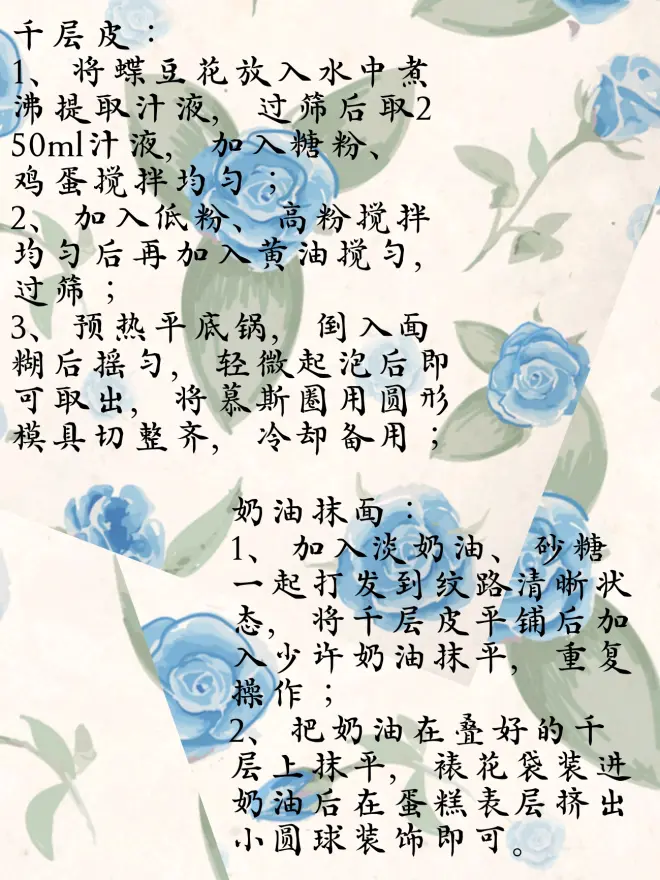 千层皮：
1、 将蝶豆花放入水中煮
沸提取汁液， 过筛后取2
50ml汁液， 加入糖粉、
鸡蛋搅拌均匀；
2、 加入低粉、高粉搅拌
均匀后再加入黄油搅匀，
过筛；
3、 预热平底锅， 倒入面
糊后摇匀， 轻微起泡后即
可取出， 将慕斯圈用圆形
模具切整齐， 冷却备用；
奶油抹面：
1、 加入淡奶油、砂糖
一起打发到纹路清晰状
态， 将千层皮平铺后加
入少许奶油抹平， 重复
操作；
2、 把奶油在叠好的千
层上抹平， 裱花袋装进
奶油后在蛋糕表层挤出
小圆球装饰即可。